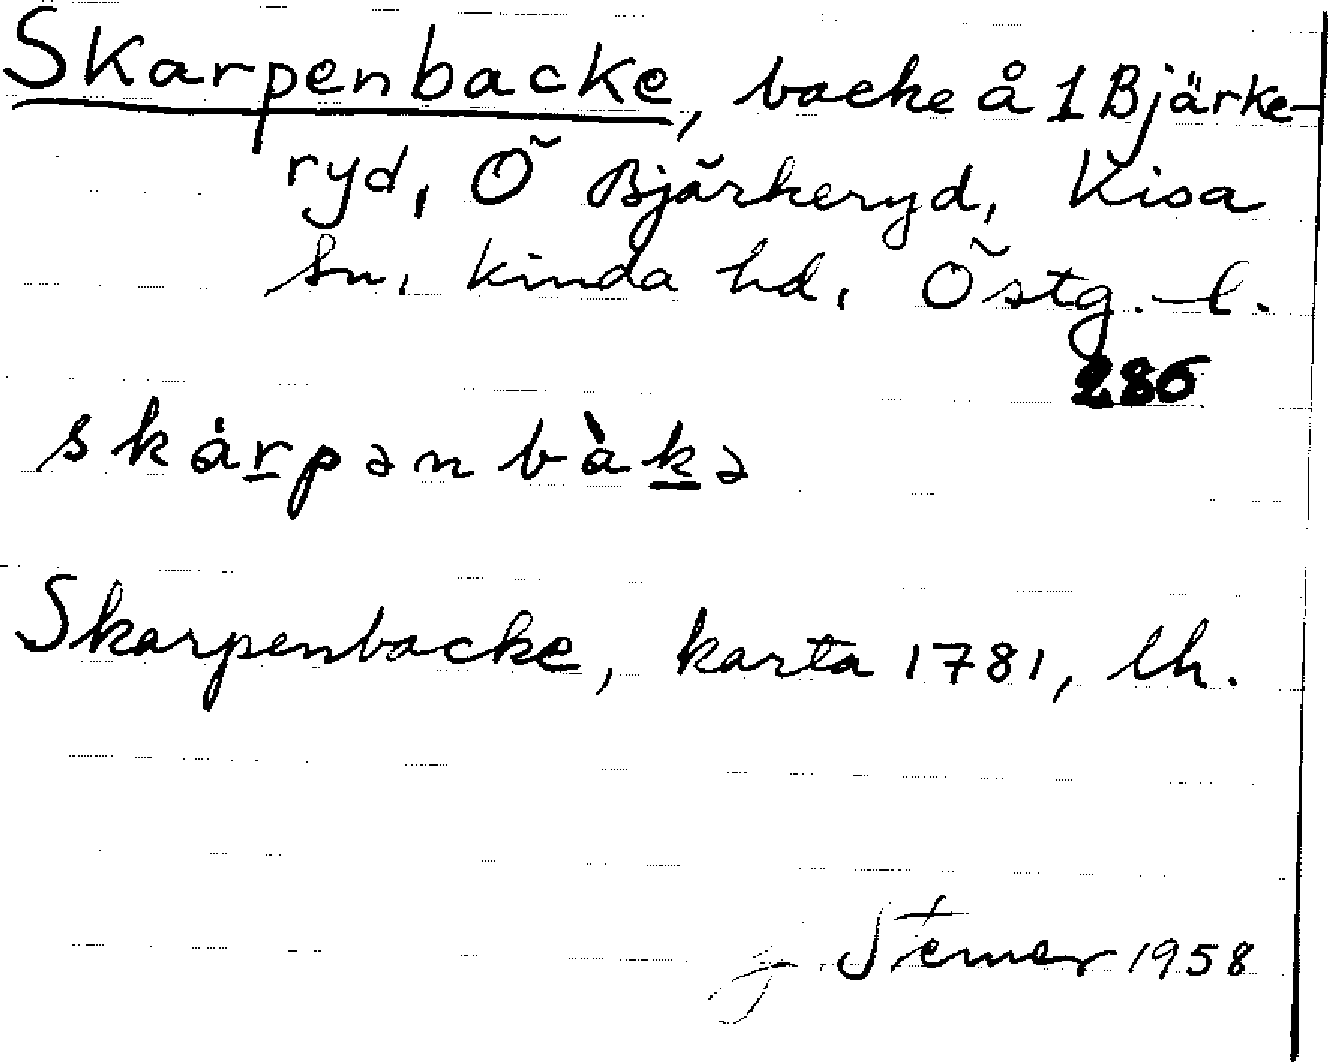 Skarpenbacke, backe å 1 Bjärke-
ryd, Ö Bjärkeryd, Kisa
sn, Kinda hd, Östg. l.
286
skàrpənbàkə
Skarpenbacke, karta 1781, lh.
1958